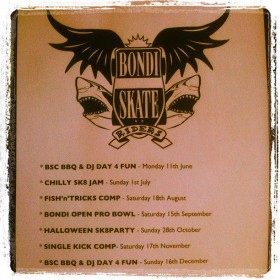 BONDI
SKATE
RIDERS
* BSC BBQ & DJ DAY 4 FUN - Monday 11th June
* CHILLY SK8 JAM - Sunday 1st July
* FISH'n'TRICKS COMP - Saturday 18th August
* BONDI OPEN PRO BOWL - Saturday 15th September
* HALLOWEEN SK8PARTY - Sunday 28th October
* SINGLE KICK COMP - Saturday 17th November
* BSC BBQ & DJ DAY 4 FUN - Sunday 16th December